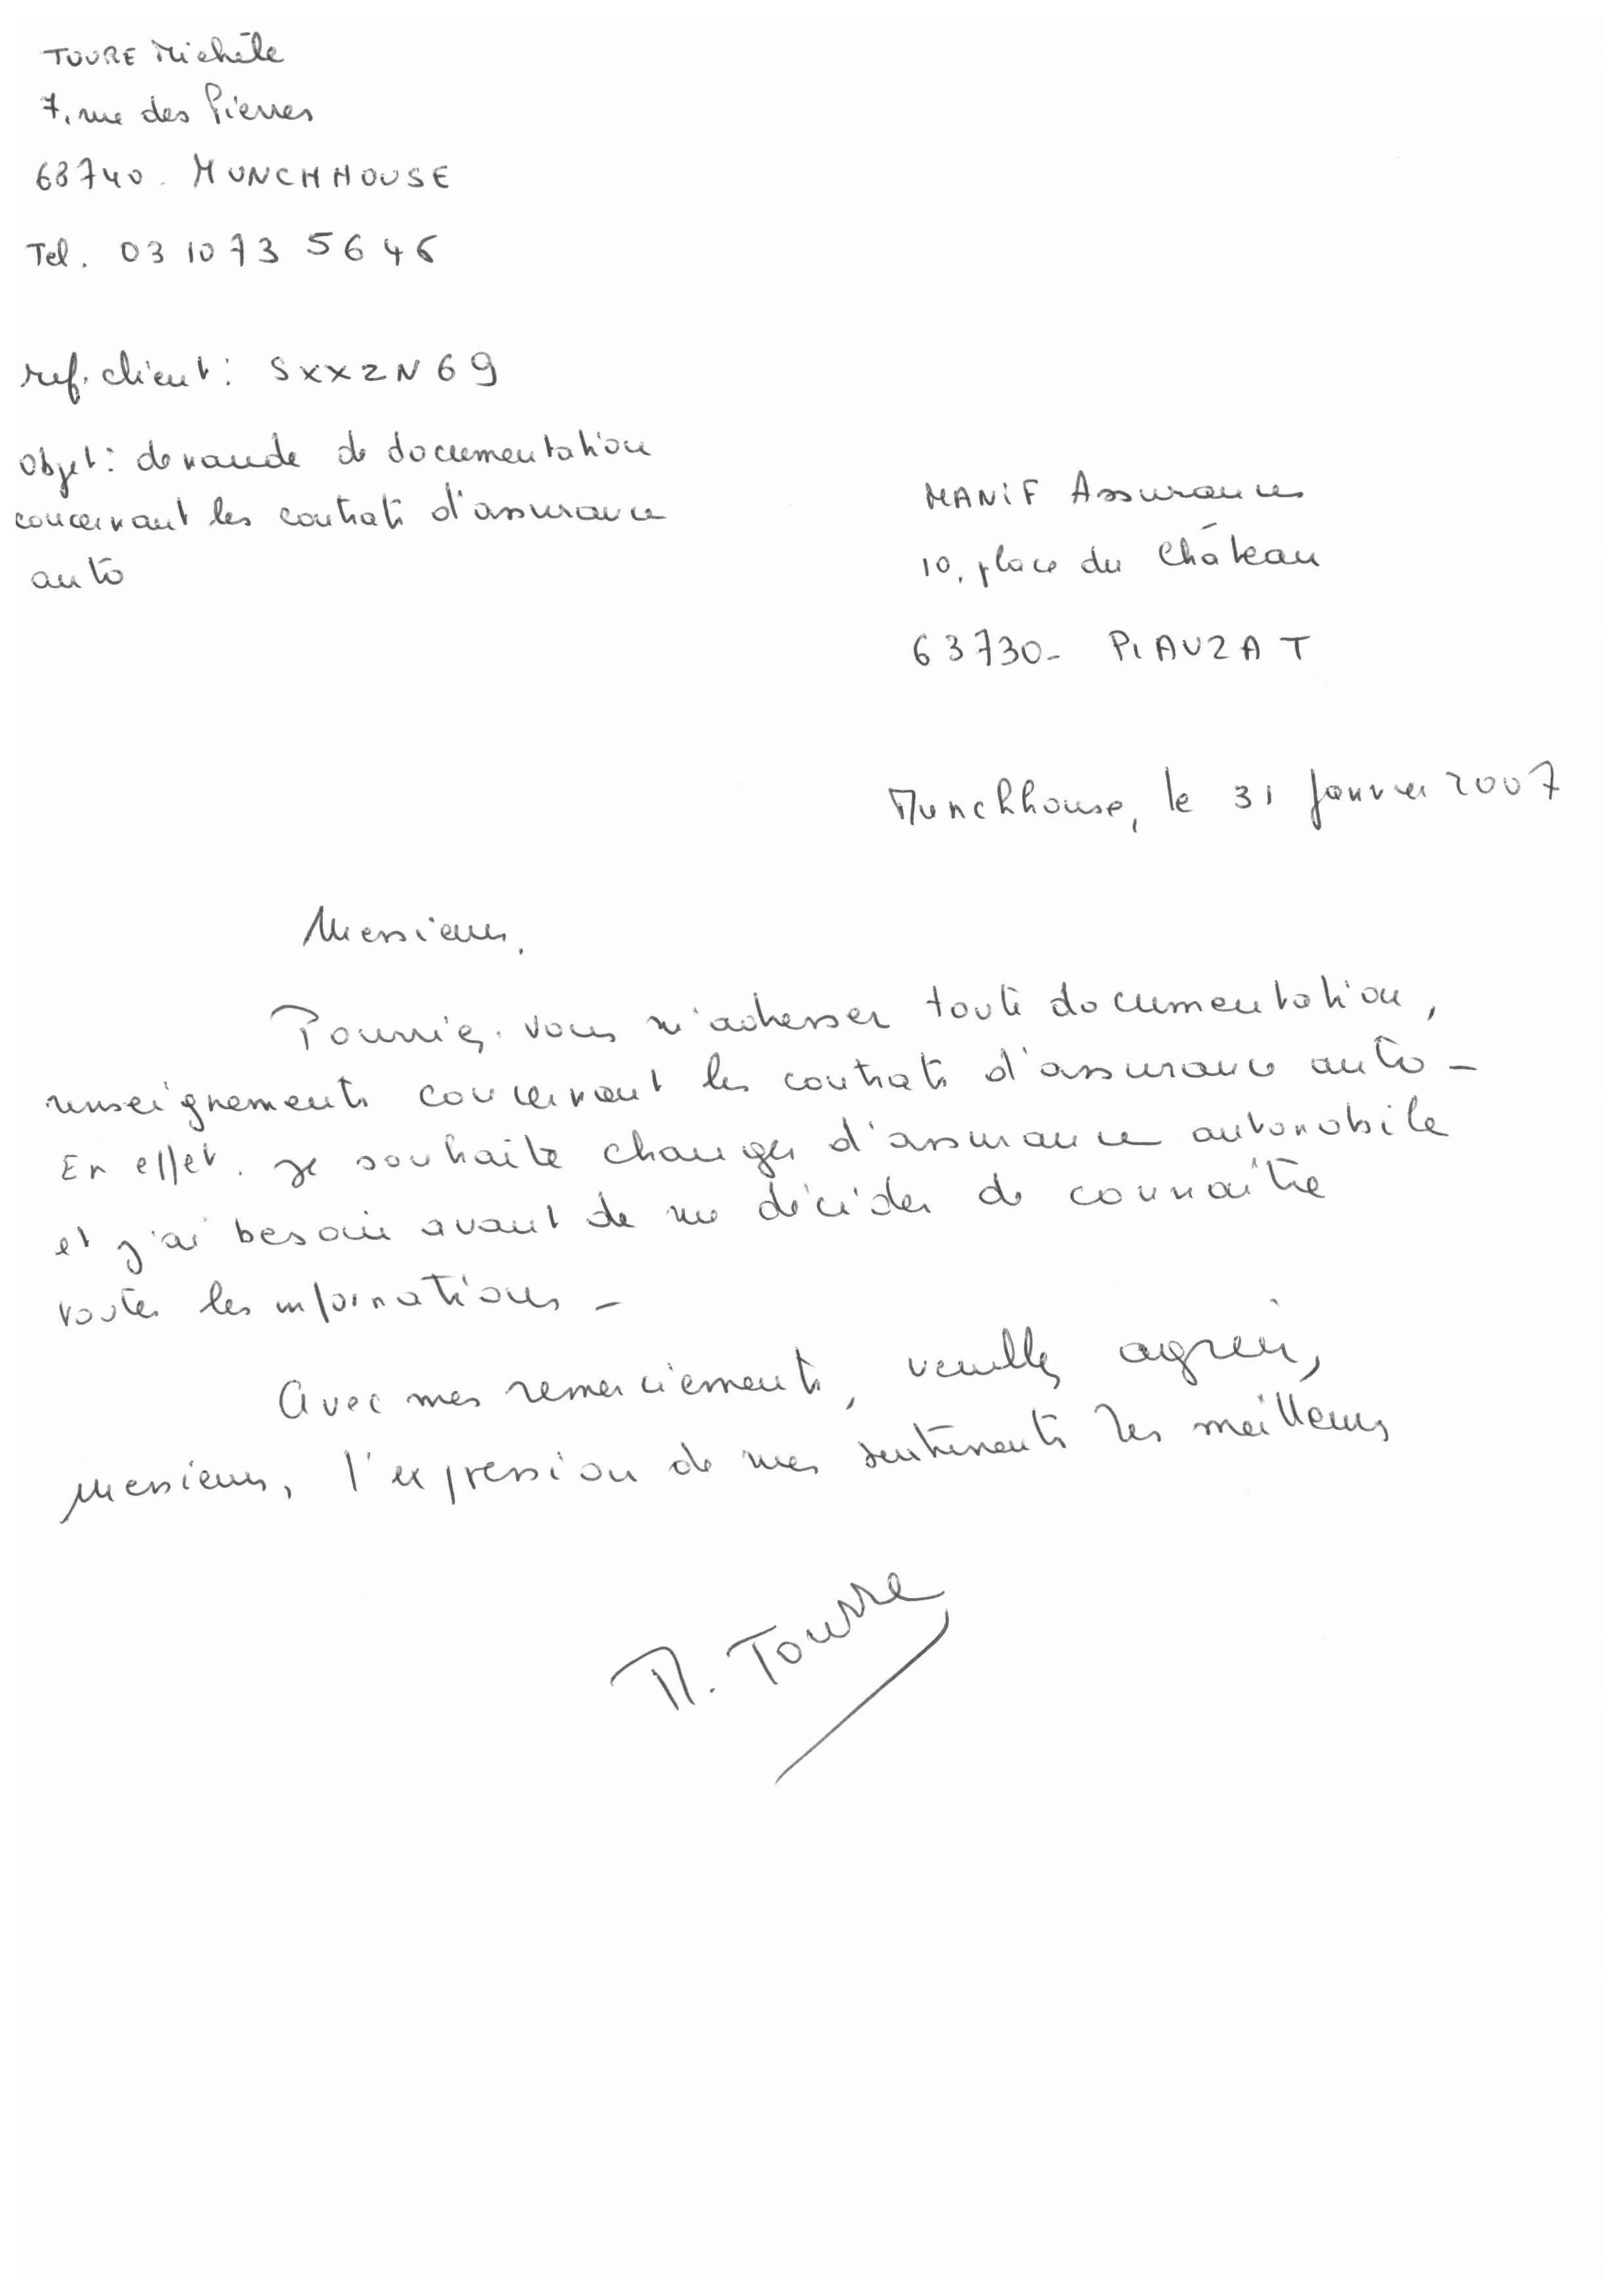 TOURE Michèle
7, rue des Pierres
68740. MUNCHHOUSE
Tel. 03 10 73 56 46
ref. client : SXXZN69
Objet : demande de documentation
concernant les contrats d'assurance
auto
MANIF Assurances
10, place du Château
63730- PLAUZAT
Munchhouse, le 31 Janvier 2007
Messieurs,
Pourriez-vous m'adresser toute documentation,
renseignements concernant les contrats d'assurance auto -
En effet. je souhaite changer d'assurance automobile
et j'ai besoin avant de me décider de connaître
toutes les informations -
Avec mes remerciements, veuillez agréer,
Messieurs, l'expression de mes sentiments les meilleurs
M. Toure